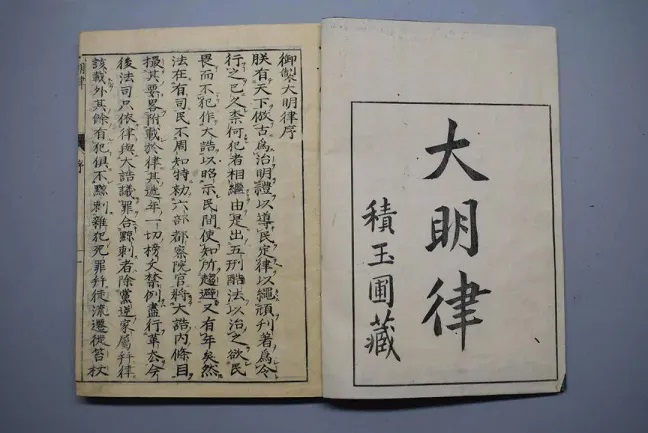 大明律
積玉圃藏
御製大明律序
朕有天下倣古爲治明禮以導民定律以繩頑刋著爲令
行之已久柰何犯者相繼由是出五刑酷法以治之欲民
畏而不犯作大誥以昭示民間使知所趨避又有年矣然
法在有司民不周知特勑六部都察院官將大誥內條目
撮其要畧附載於律其逓年一切榜文禁例盡行革去今
後法司只依律與大誥議罪合黥刺者除黨逆家屬幷律
該載外其餘有犯俱不黥刺雜犯死罪幷徒流遷徙笞杖
明律
序